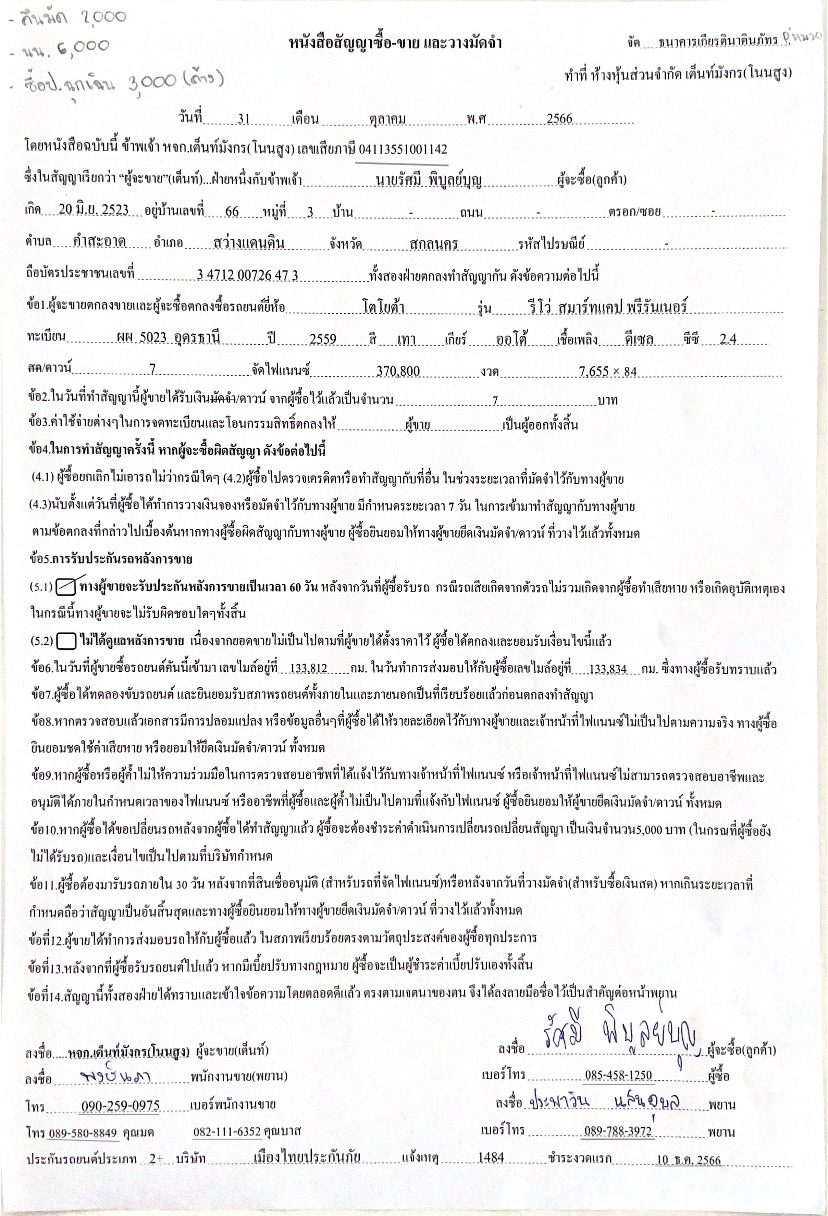 - คืนมัด 2,000
- นน. 6,000
- ซื้อป.ฉุกเฉิน 3,000 (ค้าง)
หนังสือสัญญาซื้อ-ขาย และวางมัดจำ
จัด ธนาคารเกียรตินาคินภัทร
ทำที่ ห้างหุ้นส่วนจำกัด เต็นท์มังกร(โนนสูง)
วันที่ 31 เดือน ตุลาคม พ.ศ 2566
โดยหนังสือฉบับนี้ ข้าพเจ้า หจก.เต็นท์มังกร(โนนสูง) เลขเสียภาษี 04113551001142
ซึ่งในสัญญาเรียกว่า “ผู้จะขาย”(เต็นท์)...ฝ่ายหนึ่งกับข้าพเจ้า นายรัศมี พิบูลย์บุญ ผู้จะซื้อ(ลูกค้า)
เกิด 20 มิ.ย. 2523 อยู่บ้านเลขที่ 66 หมู่ที่ 3 บ้าน - ถนน - ตรอก/ซอย -
ตำบล คำสะอาด อำเภอ สว่างแดนดิน จังหวัด สกลนคร รหัสไปรษณีย์ -
ถือบัตรประชาชนเลขที่ 3 4712 00726 47 3 ทั้งสองฝ่ายตกลงทำสัญญากัน ดังข้อความต่อไปนี้
ข้อ1.ผู้จะขายตกลงขายและผู้จะซื้อตกลงซื้อรถยนต์ยี่ห้อ โตโยต้า รุ่น รีโว่ สมาร์ทแคป พรีรันเนอร์
ทะเบียน ผผ 5023 อุดรธานี ปี 2559 สี เทา เกียร์ ออโต้ เชื้อเพลิง ดีเซล ซีซี 2.4
สด/ดาวน์ 7 จัดไฟแนนซ์ 370,800 งวด 7,655 × 84
ข้อ2.ในวันที่ทำสัญญานี้ผู้ขายได้รับเงินมัดจำ/ดาวน์ จากผู้ซื้อไว้แล้วเป็นจำนวน 7 บาท
ข้อ3.ค่าใช้จ่ายต่างๆในการจดทะเบียนและโอนกรรมสิทธิ์ตกลงให้ ผู้ขาย เป็นผู้ออกทั้งสิ้น
ข้อ4.ในการทำสัญญาครั้งนี้ หากผู้จะซื้อผิดสัญญา ดังข้อต่อไปนี้
(4.1) ผู้ซื้อยกเลิกไม่เอารถไม่ว่ากรณีใดๆ (4.2)ผู้ซื้อไปตรวจเครดิตหรือทำสัญญากับที่อื่น ในช่วงระยะเวลาที่มัดจำไว้กับทางผู้ขาย
(4.3)นับตั้งแต่วันที่ผู้ซื้อได้ทำการวางเงินจองหรือมัดจำไว้กับทางผู้ขาย มีกำหนดระยะเวลา 7 วัน ในการเข้ามาทำสัญญากับทางผู้ขาย
ตามข้อตกลงที่กล่าวไปเบื้องต้นหากทางผู้ซื้อผิดสัญญากับทางผู้ขาย ผู้ซื้อยินยอมให้ทางผู้ขายยึดเงินมัดจำ/ดาวน์ ที่วางไว้แล้วทั้งหมด
ข้อ5.การรับประกันรถหลังการขาย
(5.1) ทางผู้ขายจะรับประกันหลังการขายเป็นเวลา 60 วัน หลังจากวันที่ผู้ซื้อรับรถ กรณีรถเสียเกิดจากตัวรถไม่รวมเกิดจากผู้ซื้อทำเสียหาย หรือเกิดอุบัติเหตุเอง
ในกรณีนี้ทางผู้ขายจะไม่รับผิดชอบใดๆทั้งสิ้น
(5.2) ไม่ได้ดูแลหลังการขาย เนื่องจากยอดขายไม่เป็นไปตามที่ผู้ขายได้ตั้งราคาไว้ ผู้ซื้อได้ตกลงและยอมรับเงื่อนไขนี้แล้ว
ข้อ6.ในวันที่ผู้ขายซื้อรถยนต์คันนี้เข้ามา เลขไมล์อยู่ที่ 133,812 กม. ในวันทำการส่งมอบให้กับผู้ซื้อเลขไมล์อยู่ที่ 133,834 กม. ซึ่งทางผู้ซื้อรับทราบแล้ว
ข้อ7.ผู้ซื้อได้ทดลองขับรถยนต์ และยินยอมรับสภาพรถยนต์ทั้งภายในและภายนอกเป็นที่เรียบร้อยแล้วก่อนตกลงทำสัญญา
ข้อ8.หากตรวจสอบแล้วเอกสารมีการปลอมแปลง หรือข้อมูลอื่นๆที่ผู้ซื้อได้ให้รายละเอียดไว้กับทางผู้ขายและเจ้าหน้าที่ไฟแนนซ์ไม่เป็นไปตามความจริง ทางผู้ซื้อ
ยินยอมชดใช้ค่าเสียหาย หรือยอมให้ยึดเงินมัดจำ/ดาวน์ ทั้งหมด
ข้อ9.หากผู้ซื้อหรือผู้ค้ำไม่ให้ความร่วมมือในการตรวจสอบอาชีพที่ได้แจ้งไว้กับทางเจ้าหน้าที่ไฟแนนซ์ หรือเจ้าหน้าที่ไฟแนนซ์ไม่สามารถตรวจสอบอาชีพและ
อนุมัติได้ภายในกำหนดเวลาของไฟแนนซ์ หรืออาชีพที่ผู้ซื้อและผู้ค้ำไม่เป็นไปตามที่แจ้งกับไฟแนนซ์ ผู้ซื้อยินยอมให้ผู้ขายยึดเงินมัดจำ/ดาวน์ ทั้งหมด
ข้อ10.หากผู้ซื้อได้ขอเปลี่ยนรถหลังจากผู้ซื้อได้ทำสัญญาแล้ว ผู้ซื้อจะต้องชำระค่าดำเนินการเปลี่ยนรถเปลี่ยนสัญญา เป็นเงินจำนวน5,000 บาท (ในกรณีที่ผู้ซื้อยัง
ไม่ได้รับรถ)และเงื่อนไขเป็นไปตามที่บริษัทกำหนด
ข้อ11.ผู้ซื้อต้องมารับรถภายใน 30 วัน หลังจากที่สินเชื่ออนุมัติ (สำหรับรถที่จัดไฟแนนซ์)หรือหลังจากวันที่วางมัดจำ(สำหรับซื้อเงินสด) หากเกินระยะเวลาที่
กำหนดถือว่าสัญญาเป็นอันสิ้นสุดและทางผู้ซื้อยินยอมให้ทางผู้ขายยึดเงินมัดจำ/ดาวน์ ที่วางไว้แล้วทั้งหมด
ข้อที่12.ผู้ขายได้ทำการส่งมอบรถให้กับผู้ซื้อแล้ว ในสภาพเรียบร้อยตรงตามวัตถุประสงค์ของผู้ซื้อทุกประการ
ข้อที่13.หลังจากที่ผู้ซื้อรับรถยนต์ไปแล้ว หากมีเบี้ยปรับทางกฎหมาย ผู้ซื้อจะเป็นผู้ชำระค่าเบี้ยปรับเองทั้งสิ้น
ข้อที่14.สัญญานี้ทั้งสองฝ่ายได้ทราบและเข้าใจข้อความโดยตลอดดีแล้ว ตรงตามเจตนาของตน จึงได้ลงลายมือชื่อไว้เป็นสำคัญต่อหน้าพยาน
ลงชื่อ หจก.เต็นท์มังกร(โนนสูง) ผู้จะขาย(เต็นท์) ลงชื่อ รัศมี พิบูลย์บุญ ผู้จะซื้อ(ลูกค้า)
ลงชื่อ พนักงานขาย(พยาน) เบอร์โทร 085-458-1250 ผู้ซื้อ
โทร 090-259-0975 เบอร์พนักงานขาย ลงชื่อ ประพาวิน แสนอุบล พยาน
โทร 089-580-8849 คุณมด 082-111-6352 คุณบาส เบอร์โทร 089-788-3972 พยาน
ประกันรถยนต์ประเภท 2+ บริษัท เมืองไทยประกันภัย แจ้งเหตุ 1484 ชำระงวดแรก 10 ธ.ค. 2566